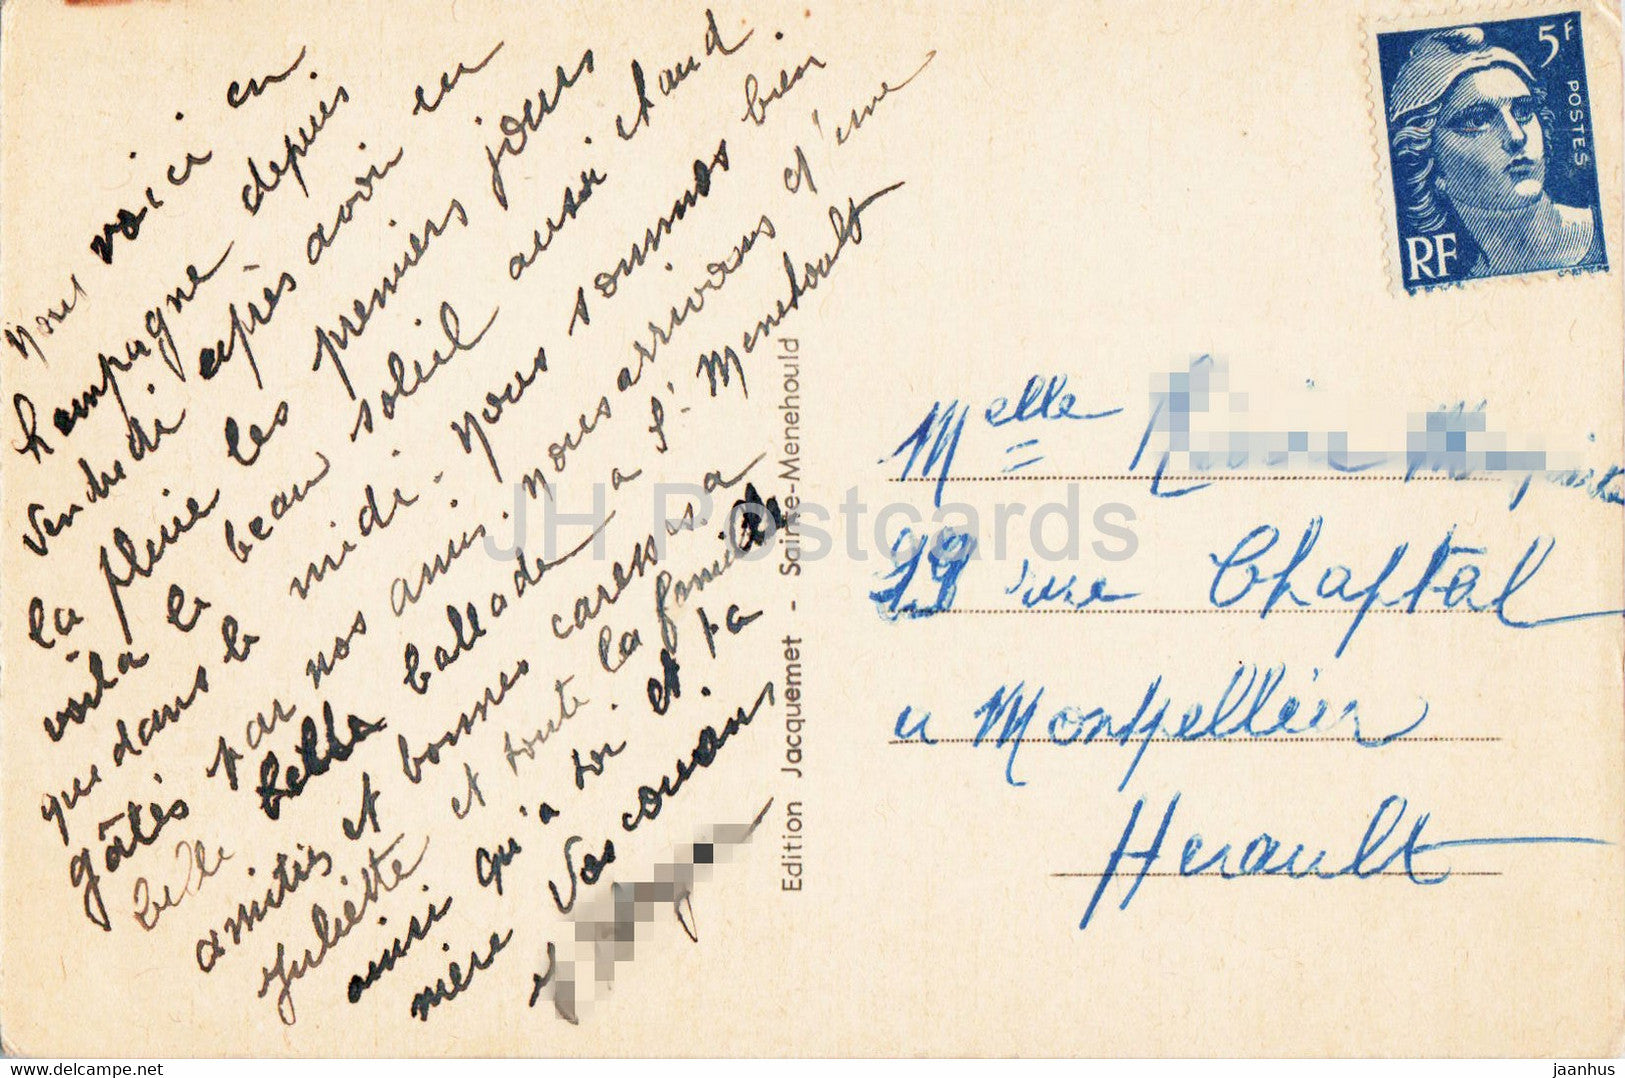 Nous voici en
Champagne depuis
Vendredi après avoir eu
la pluie les premiers jours
voila le beau soleil aussi chaud
que dans le midi. Nous sommes bien
gâtés par nos amis. Nous arrivons d'une
belle belle ballade a St. Menehoult
amitiés et bonnes caresses a
Juliette et toute la famille
ainsi qu'a toi et ta
mère Vos cousins
Edition Jacquemet - Sainte-Menehould
5F
POSTES
RF
Melle
29 rue Chaptal
a Montpellier
Herault
JH Postcards
www.hippostcard.com
jaanhus